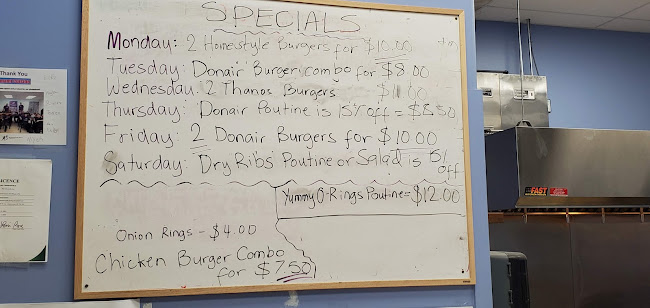 SPECIALS
Monday: 2 Homestyle Burgers for $10.00
Tuesday: Donair Burger combo for $8.00
Wednesday: 2 Thanos Burgers
Thursday: Donair Poutine is 15% off = $8.50
Friday: 2 Donair Burgers for $10.00
Saturday: Dry Ribs Poutine or Salad is 15% off
Yummy O-Rings Poutine = $12.00
Onion Rings - $4.00
Chicken Burger Combo
for $7.50
Thank You
FAST